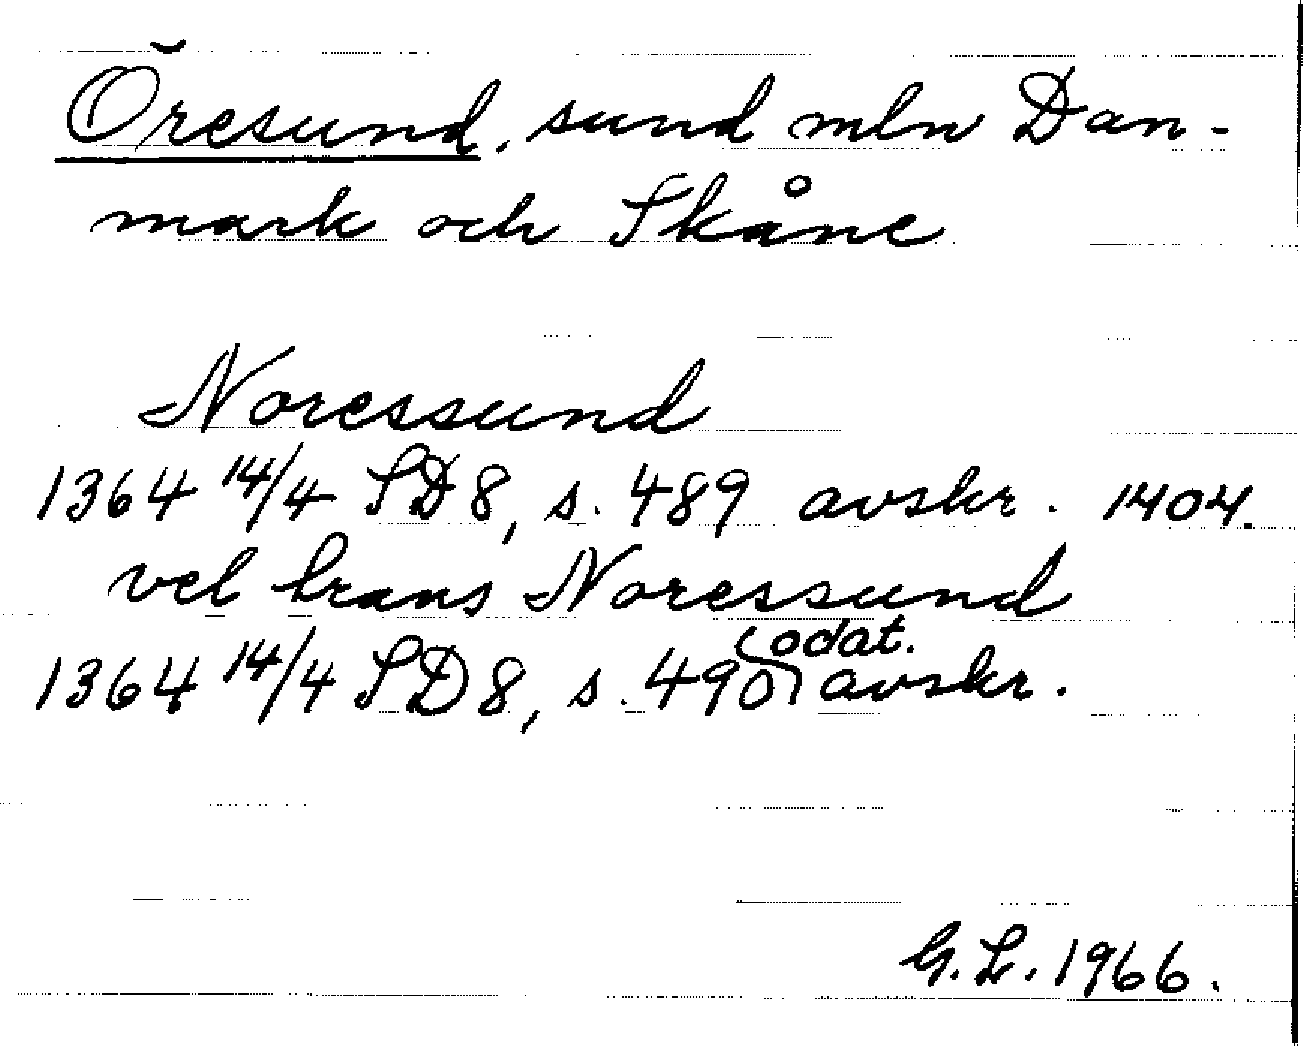 Öresund, sund mln Dan-
mark och Skåne
Noressund
1364 14/4 SD 8, s. 489 avskr. 1404.
vel trans Noressund
1364 14/4 SD 8, s. 490 odat. avskr.
G. L. 1966.